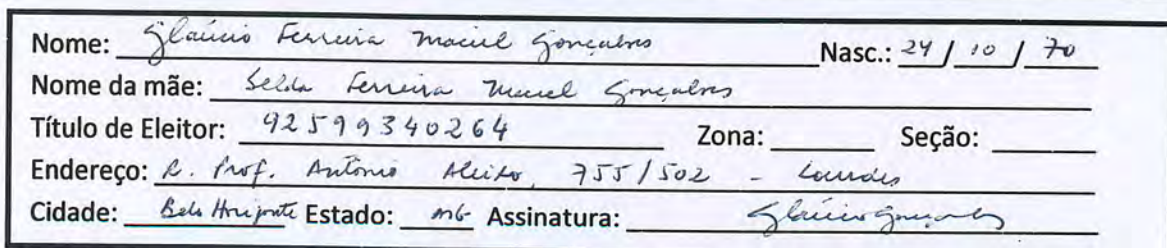 Nome: Gláucio Ferreira Maciel Gonçalves Nasc.: 24 / 10 / 70
Nome da mãe: Selda Ferreira Maciel Gonçalves
Título de Eleitor: 92599340264 Zona: Seção:
Endereço: R. Prof. Antônio Aleixo, 755/502 - Lourdes
Cidade: Belo Horizonte Estado: MG Assinatura: Gláucio Gonçalves